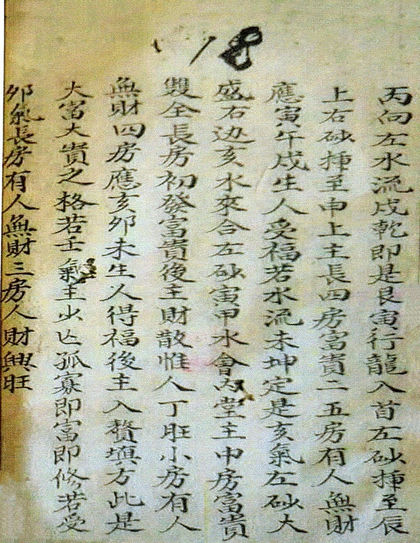 18
丙向左水流戌乾即是艮寅行龍入首左砂揷至辰
上右砂揷至申上主長四房富貴二五房有人無財
應寅午戌生人受福若水流未坤定是亥氣左砂大
盛右边亥水來合左砂寅甲水會内堂主中房富貴
雙全長房初發富貴後主財散惟人丁旺小房有人
無財四房應亥夘未生人得福後主入贅填方此是
大富大貴之格若壬氣主少亡孤寡即富即修若受
夘氣長房有人無財三房人財興旺